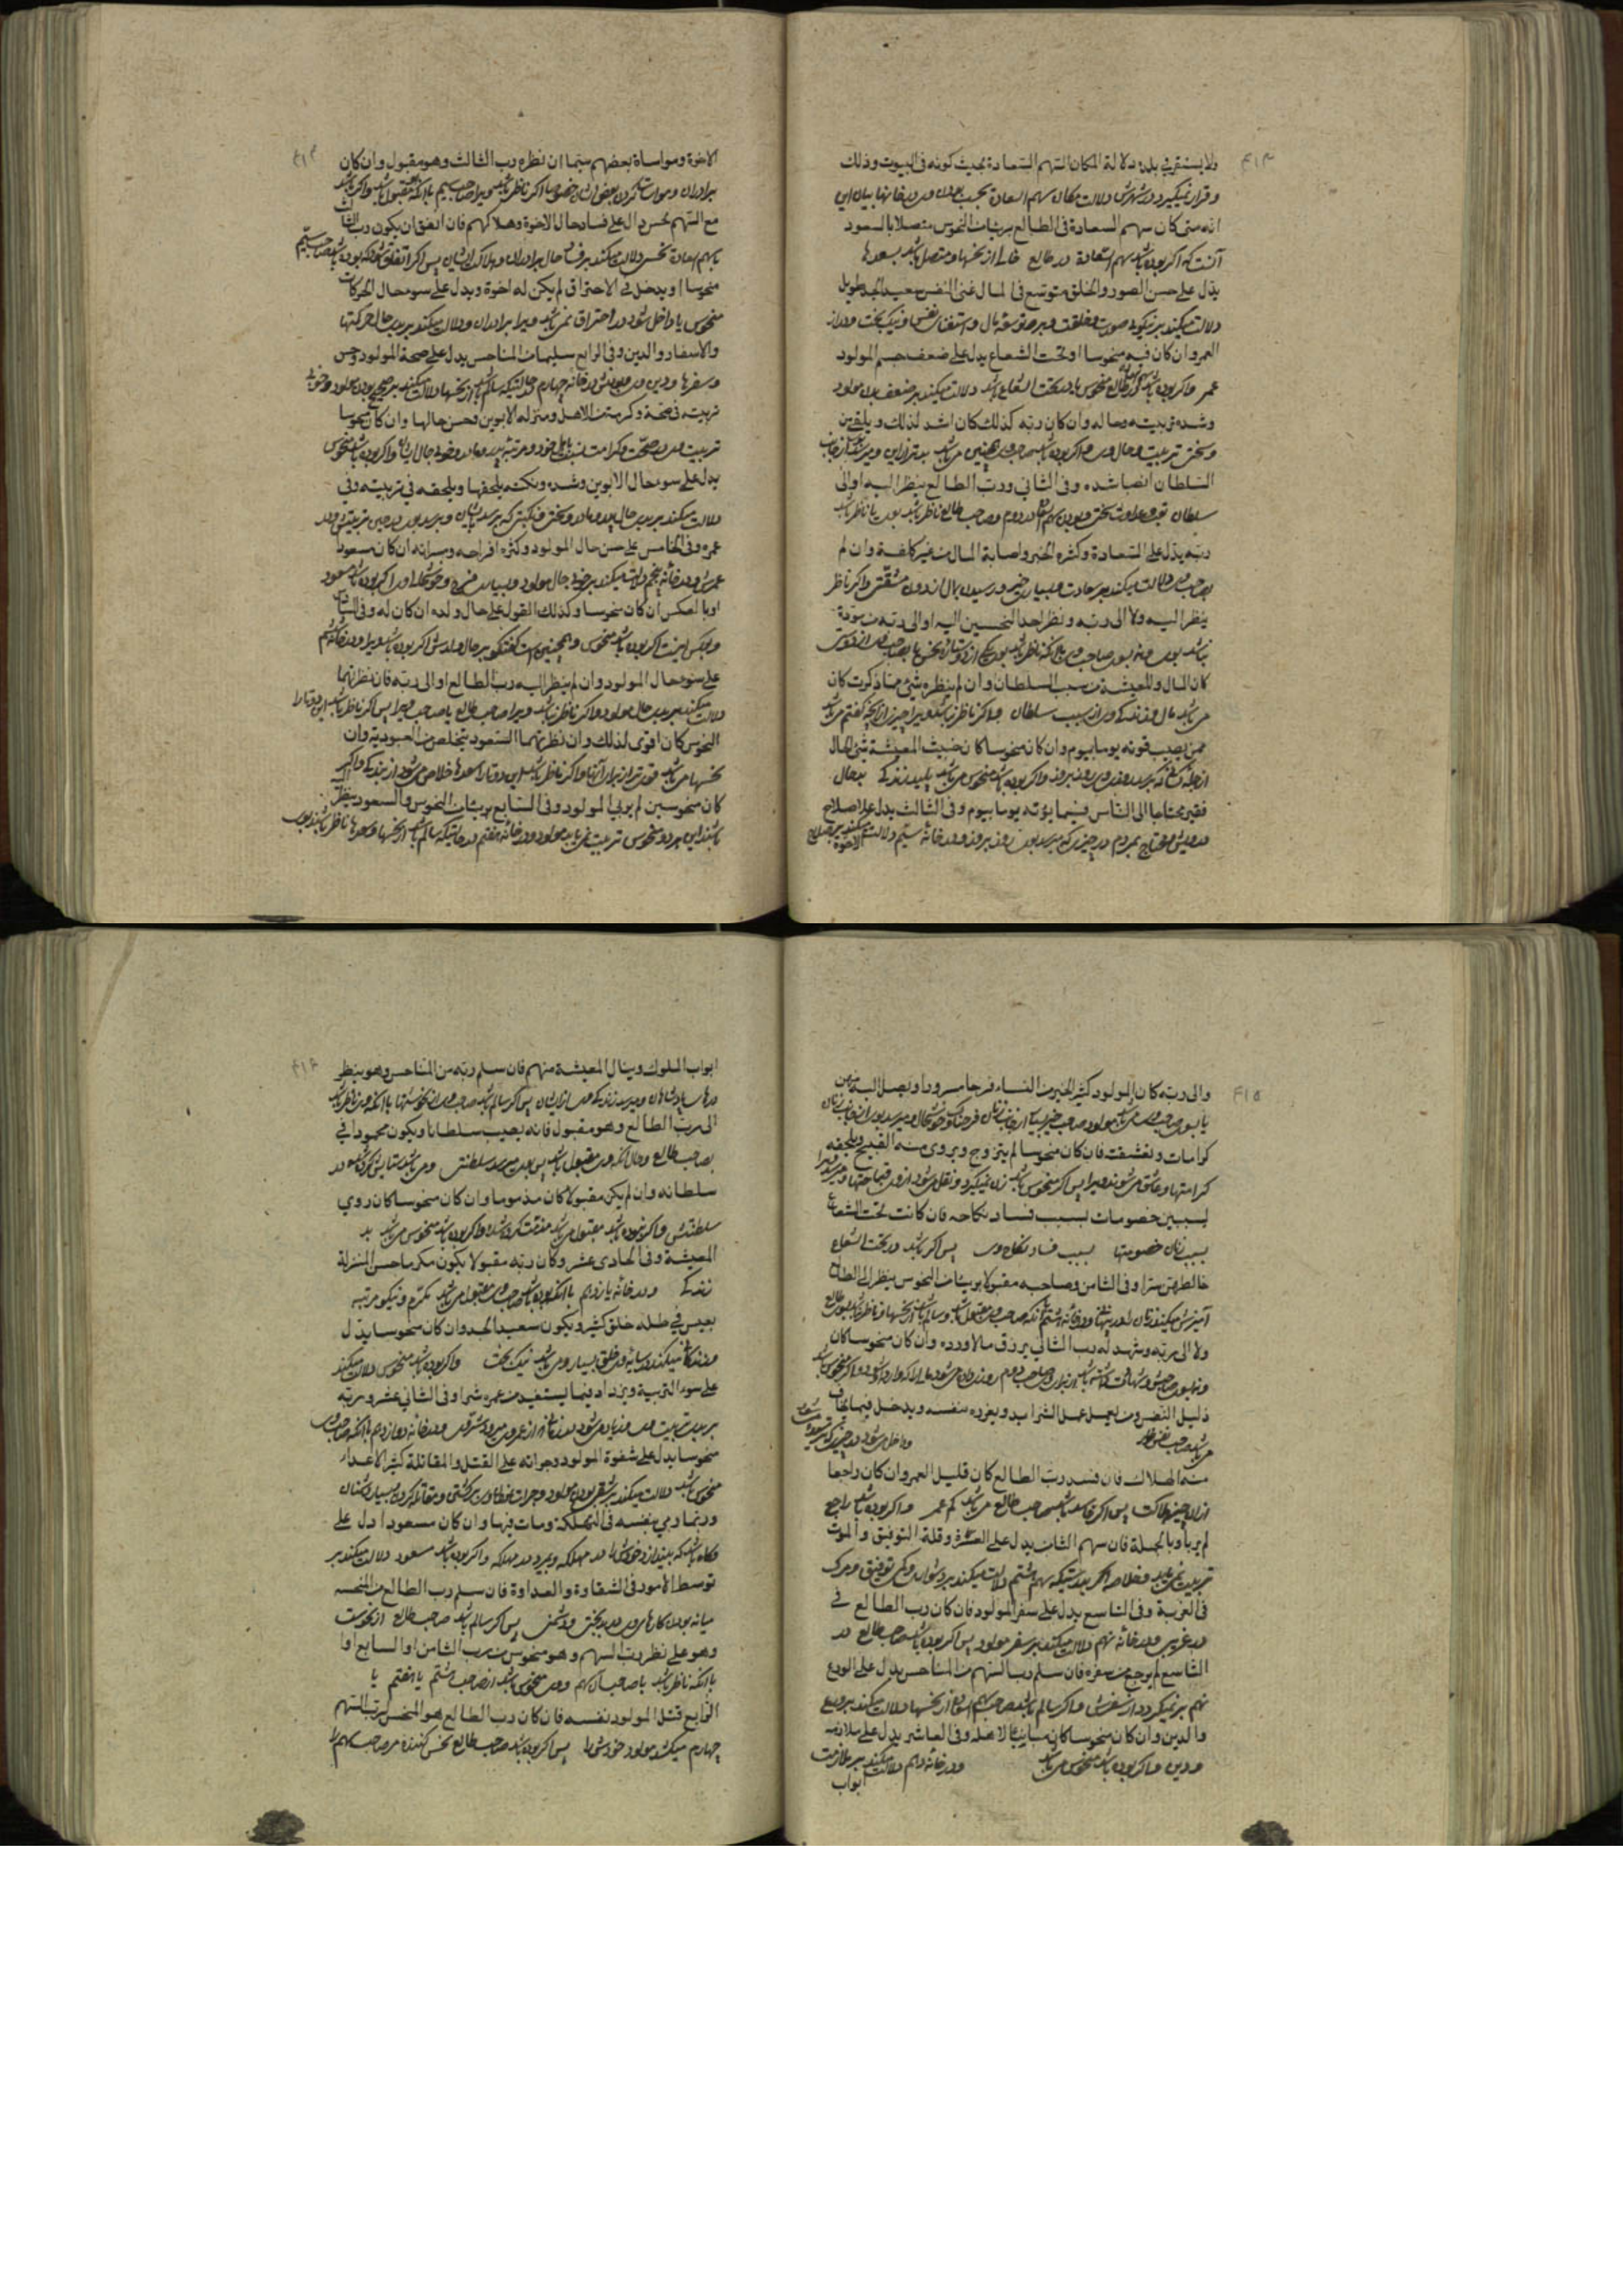 ولا يستقر في بلده دلالة المكان السهم السعادة بحيث كونه في البيوت وذلك
و قرار نمیگیرد در شهرش دلالت مکان سهم السعادة بحسب بودن در خانها بیان این
انه متى كان سهم السعادة في الطالع بريئا من النحوس متصلا بالسعود
آنست که اگر بوده باشد سهم السعادة در طالع خالی از نحسها و متصل باشد بسعدها
يدل على حسن الصور والخلق متوسع في المال غنى النفس سعيد الجد طويل
دلالت میکند بر نیکوی صورت و خلقت و بر توسعه مال و استغنای نفس و نیک بخت و دراز
العمر وان كان فيه منحوسا او تحت الشعاع يدل على ضعف جسم المولود
عمر و اگر بوده باشد در طالع منحوس یا در تحت الشعاع باشد دلالت میکند بر ضعف بدن مولود
وشدة تربيته وحاله وان كان ربه كذلك كان اشد لذلك ويلقى من
و سختی تربیت و حال وی و اگر بوده باشد صاحب وی همچنین می باشد بدتر از این و میرسد از جانب
السلطان انصبا شدة وفي الثاني ورب الطالع ينظر اليه او الى
سلطان تعب و عداوت سختی و بودن سهم در دوم و صاحب طالع ناظر باشد بوی یا ناظر باشد
ربه يدل على السعادة وكثرة الخير واصابة المال من غير كلفة وان لم
بصاحب وی دلالت میکند بر سعادت و بسیاری خیر و رسیدن بمال بدون مشقت و اگر ناظر
ينظر اليه ولا الى ربه ونظر احد النحسين اليه او الى ربه من مودة
نباشد بوی و نه بسوی صاحب وی با آنکه ناظر باشد بوی یکی از دو ستاره نحس یا بصاحب وی از دوستی
كان المال والمعيشة من سبب السلطان وان لم ينظره شئ مما ذكرت كان
می باشد مال و زندگی وی از سبب سلطان و اگر ناظر نباشد ویرا چیزی از آنچه گفتم می باشد
ممن يصيب قوته يوما بيوم وان كان منحوسا كان خبيث المعيشة سئ الحال
از جمله کسی که میرسد روزی وی روز بروز و اگر بوده باشد منحوس می باشد پلید زندگی بدحال
فقير محتاجا الى الناس فيما يؤته يوما بيوم وفي الثالث يدل على اصلاح
درویش و محتاج بمردم در چیزی که میرسد بوی روز بروز و در خانه سیّم دلالت میکند بر صلاح
الاخوة
الاخوة ومواساة بعضهم سيما ان نظره رب الثالث وهو مقبول وان كان
برادران و مواسات کردن بعض ایشان خصوصا اگر ناظر باشد ویرا صاحب سیم با آنکه مقبول باشد و اگر باشد
مع السهم نحس دال على فساد حال الاخوة وهلاكهم فان اتفق ان يكون رب الثالث
با سهم سعادة نحس دلالت میکند بر فساد حال برادران و هلاک ایشان پس اگر اتفاق شود که بوده باشد صاحب سیّم
منحوسا او يدخل في الاحتراق لم يكن له اخوة ويدل على سوء حال الحركات
منحوس یا داخل شود در احتراق نمی باشد ویرا برادران و دلالت میکند بر بدی حال حرکتها
والاسفار والدين وفي الرابع سليما من المناحس يدل على صحة المولود وحسن
و سفرها و دین و بودنش در خانه چهارم در حالتیکه سالم باشد از نحسها دلالت میکند بر صحیح بودن مولود و خوبی
تربيته في صحة وكرمته من الاهل ومنزله لابوين وحسن حالها وان كان منحوسا
تربیت وی در صحت و کرامت نسبت باهل خود و مرتبه پدر و مادر و خوبی حال ایشان و اگر بوده باشد منحوس
يدل على سوء حال الابوين وشدة ونكبة يلحقها ويلحقه في تربيته وفي
دلالت میکند بر بدی حال پدر و مادر و سختی و نکبتی که برسد بایشان و برسد بوی در حین تربیتش و در
عمره وفي الخامس على حسن حال المولود وكثرة افراحه ومسراته ان كان مسعودا
عمرش و در خانه پنجم دلالت میکند بر خوبی حال مولود و بسیاری فرح و خوشحالی او را اگر بوده باشد مسعود
او بالعكس ان كان منحوسا وكذلك القول على حال ولده ان كان له وفي السادس
و بعکس اینست اگر بوده باشد منحوس و همچنین است گفتگو بر حال ولدش اگر بوده باشد ویرا و در خانه ششم
على سوء حال المولود وان لم ينظر اليه رب الطالع او الى ربه فان نظرتهما
دلالت میکند بر بدی حال مولود و اگر ناظر نباشد ویرا صاحب طالع یا صاحب ویرا پس اگر ناظر باشد این دو تا را
النحوس كان اقوى لذلك وان نظرتهما السعود يتخلص من العبودية وان
نحسها می باشد قوی تر از برای آن و اگر ناظر باشد این دو تا را سعدها خلاص می شود از بندگی و اگر
كان منحوسين لم يربى المولود وفي السابع بريئا من النحوس والسعود ينظر اليه
باشند این هر دو منحوس تربیت نمی یابد مولود و در خانه هفتم در حالتیکه سالم باشد از نحسها و سعدها ناظر باشند بوی
والى ربه كان المولود كثير الخير من النساء فرحا مسرورا ويصل اليه منهن
یا بسوی صاحب وی می باشد مولود صاحب خیر بسیار از جانب زنان فرحناک و خوشحال و میرسد بوی از جانب زنان
كرامات وتعشقت فان كان منحوسا لم يتزوج ويروى منه القبيح ويلحقه
کرامتها و عاشق می شوند ویرا پس اگر منحوس باشد زن نمیگیرد و نقل می شود از وی قباحتها و میرسد ویرا
لسببهن خصومات بسبب فساد نكاحه فان كانت تحت الشعاع
بسبب زنان خصومتها بسبب فساد نکاح وی پس اگر باشد در تحت الشعاع
خالطهن سترا وفي الثامن وصاحبه مقبولا بريئا من النحوس ينظر الى الطالع
آمیزش میکند زنان را در پنهانی و در خانه هشتم با آنکه صاحب وی مقبول باشد و سالم باشد از نحسها و ناظر باشد بسوی طالع
ولا الى ربه وشهد له رب الثاني يرزق مالا ورده وان كان منحوسا كان
ذليل النفس ومن يعمل عمل الشرايد ويغرده بنفسه ويدخل فيما يخاف
می باشد صاحب نفس خوار و داخل می شود در چیزی که ترسیده می شود
منه الهلاك فان فسد رب الطالع كان قليل العمر وان كان راجعا
از آن چیز هلاکت پس اگر فاسد باشد صاحب طالع می باشد کم عمر و اگر بوده باشد راجع
لم يربا وبالجملة فان سهم الثامن يدل على العسرة وقلة التوفيق والموت
تربیت نمی یابد و خلاصه اگر بدرستیکه سهم هشتم دلالت میکند بر دشواری و کمی توفیق و مرگ
في الغربة وفي التاسع يدل على سفر المولود فان كان رب الطالع في
در غریبی و در خانه نهم دلالت میکند بر سفر مولود پس اگر بوده باشد صاحب طالع در
التاسع لم يرجع من سفره فان سلم رب السهم من المناحس يدل على الورع
نهم بر نمیگردد از سفرش و اگر سالم باشد صاحب سهم السعادة از نحسها دلالت میکند بر ورع
والدين وان كان منحوسا كان مباينا لاهله وفي العاشر يدل على ملازمة
و دین و اگر بوده باشد منحوس می باشد و در خانه دهم دلالت میکند بر ملازمت
ابواب
ابواب الملوك وينال المعيشة منهم فان سلم ربه من المناحس وهو ينظر
درهای پادشاهان و میرسد زندگی وی از ایشان پس اگر سالم باشد صاحب وی از نحوستها با آنکه وی ناظر باشد
الى رب الطالع وهو مقبول فانه يصيب سلطانا ويكون محمودا في
بصاحب طالع و حال آنکه وی مقبول باشد پس بوی میرسد سلطنتی و می باشد ستایش کرده شده در
سلطانه وان لم يكن مقبولا كان مذموما وان كان منحوسا كان ردي
سلطنتش و اگر نبوده باشد مقبول می باشد مذمت کرده شده و اگر بوده باشد منحوس می باشد بد
المعيشة وفي الحادى عشر وكان ربه مقبولا يكون مكرما حسن المنزلة
زندگی و در خانه یازدهم با آنکه بوده باشد صاحب وی مقبول می باشد مکرّم و نیکو مرتبه
يعيس في ظله خلق كثير ويكون سعيد الجد وان كان منحوسا يدل
و زندگانی میکند در سایه وی خلق بسیار و می باشد نیک بخت و اگر بوده باشد منحوس دلالت میکند
على سوء التربية ويزداد فيما يستفيد من عمره شرا وفي الثاني عشر وربه
بر بدی تربیت وی و زیاد می شود در زمانی از عمر وی بدی و شرّ وی و در خانه دوازدهم با آنکه صاحب وی
منحوسا يدل على شقوة المولود وجراته على القتل والمقاتلة كثير الاعداء
منحوس باشد دلالت میکند بر شقی بودن مولود و جرات نمودن وی بر کشتن و مقاتله کردن و بسیاری دشمنان
وربما رمي بنفسه في التهلكة ومات فيها وان كان مسعودا دل على
و گاه باشد که بیندازد خودش را در مهلکه و بمیرد در مهلکه و اگر بوده باشد مسعود دلالت میکند بر
توسط الامور في الشقاوة والعداوة فان سلم رب الطالع من النحسه
میانه بودن کارهای وی در بدبختی و دشمنی پس اگر سالم باشد صاحب طالع از نحوست
وهو على نظر رب السهم وهو منحوس من رب الثامن او السابع او
با آنکه ناظر باشد با صاحب آن سهم و وی منحوس باشد از صاحب هشتم یا هفتم یا
الرابع قتل المولود نفسه فان كان رب الطالع هو المنحس لرب السهم
چهارم میکشد مولود خودش را پس اگر بوده باشد صاحب طالع نحس کننده مر صاحب سهم را